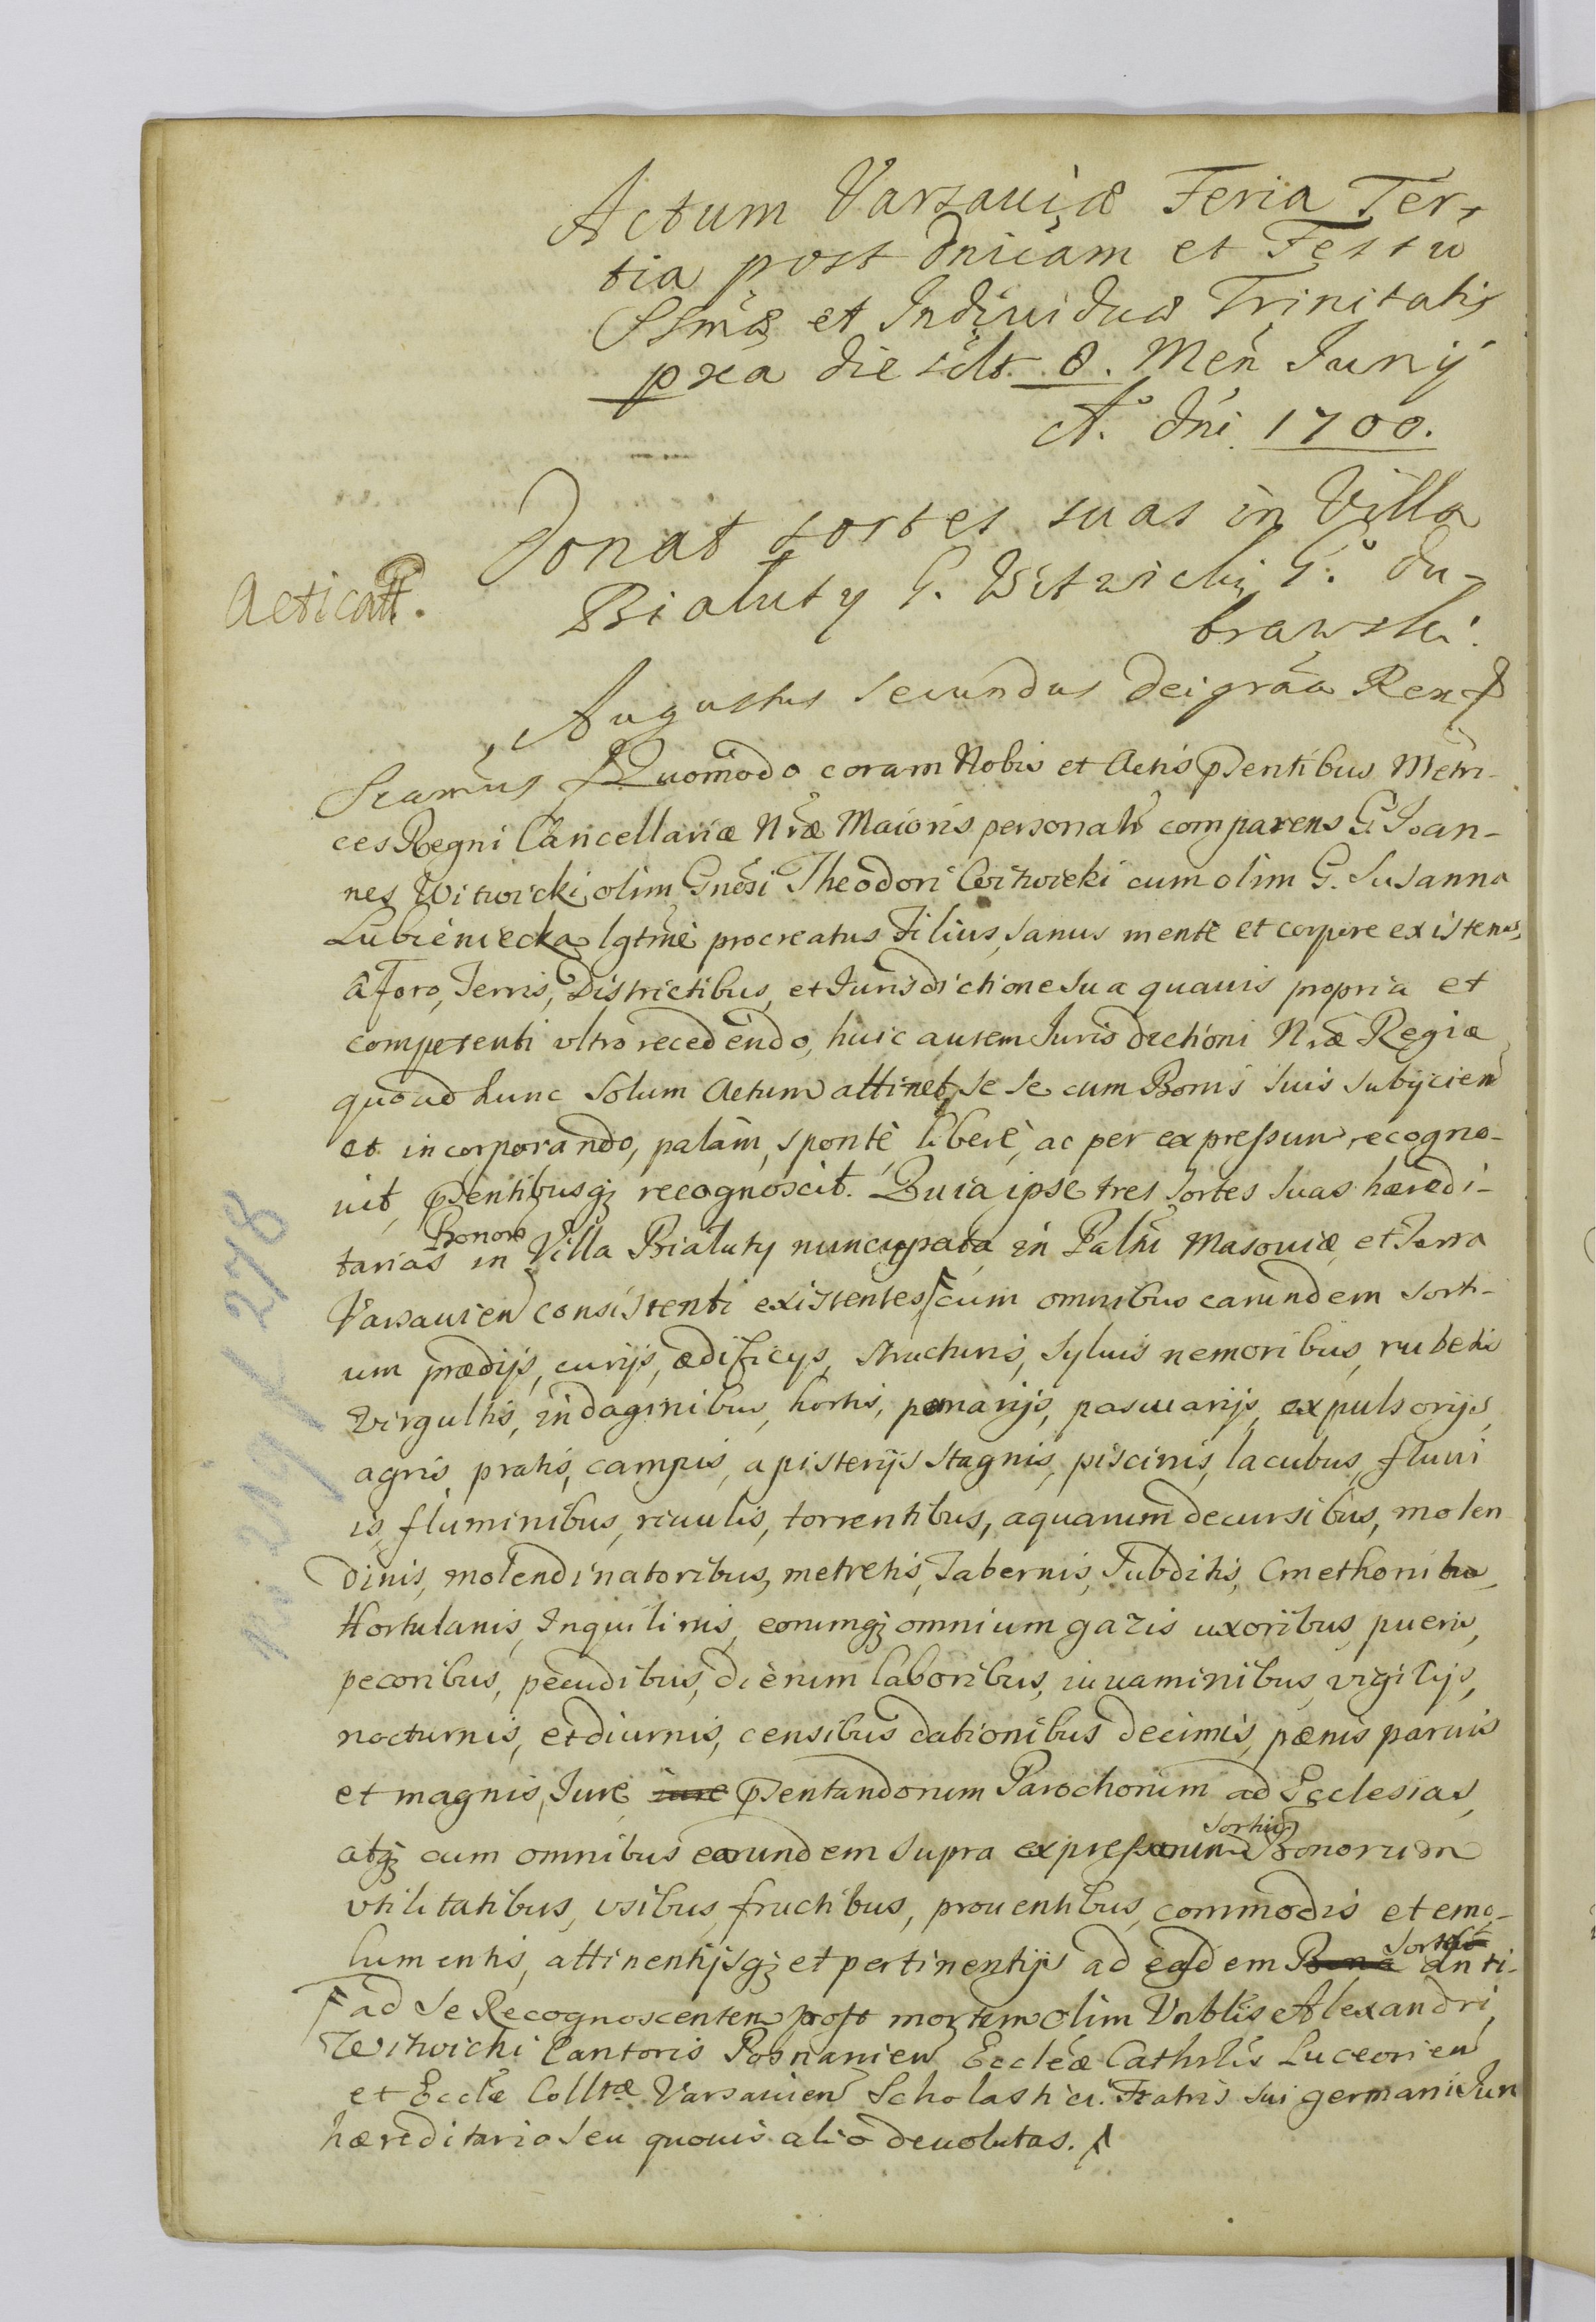 Actum Varsauiæ Feria Ter-
tia post Dnicam et Festu
SSmæ et Indiuiduæ Trinitatis
pxa die sclt 8. Men Junÿ
A.° Dni 1700.
Donat sortes suas in Villa
Bialuty G. Witwicki G.° Du-
browski.
Acticatt.
Augustus Secundus Dei grãa Rex
Seamus Quomodo coram Nobis et Actis pñtentibus Metri-
ces Regni Cancellariæ Nræ Maioris personalr comparens G. Joan-
nes Witwicki, olim Gnosi Theodori Witwicki cum olim G. Susanna
Lubieniecka lgtme procreatus Filius, sanus mente et corpore existens,
a Foro, Terris, Districtibus, et Jurisdictione sua quauis propria et
competenti vltro recedendo, huic autem Jurisdictioni Nræ Regiæ
quoad hunc solum Actum attinet, se se cum Bonis suis subijcien
et incorporando, palàm, spontè liberè, ac per expressum recogno-
uit, psentibusq; recognoscit. Quia ipse tres sortes suas hæredi-
Bonor
tarias in Villa Bialuty nuncupata in Palñi Masouiæ, et Terra
Varsauien consistenti existentes cum omnibus earundem sorti-
um prædijs, curijs, ædificÿs, structuris, syluis nemoribus, rubetis
virgultis, indaginibus, hortis, pomarijs, pascuarijs, expulsorijs,
agris, pratis, campis, apisterijs stagnis, piscinis, lacubus, fluui
is, fluminibus, riuulis, torrentibus, aquarum decursibus, molen
dinis, molendinatoribus, metretis, Tabernis, Subditis, Cmethonibus,
Hortulanis, Inquilinis, eorumq; omnium gazis uxoribus, pueris,
pecoribus, pecudibus, dierum laboribus, iuuaminibus, vigilijs,
nocturnis, et diurnis, censibus dationibus decimis, pænis paruis
et magnis, Jure iure psentandorum Parochorum ad Ecclesias,
sortiu
atq; cum omnibus earundem supra expressarum Bonorum
vtilitatibus, vsibus, fructibus, prouentibus, commodis et emo-
sortes
lumentis, attinentijsq; et pertinentijs ad eadem Bona anti-
ad se Recognoscentem post mortem olim Vnblis Alexandri
Witwicki Cantoris Posnanien Eccleæ Cathrlis Luceorien
et Ecclæ Colltæ Varsauien Scholastici. Fratris sui germani Jure
hæreditario seu quouis alio deuolutas.